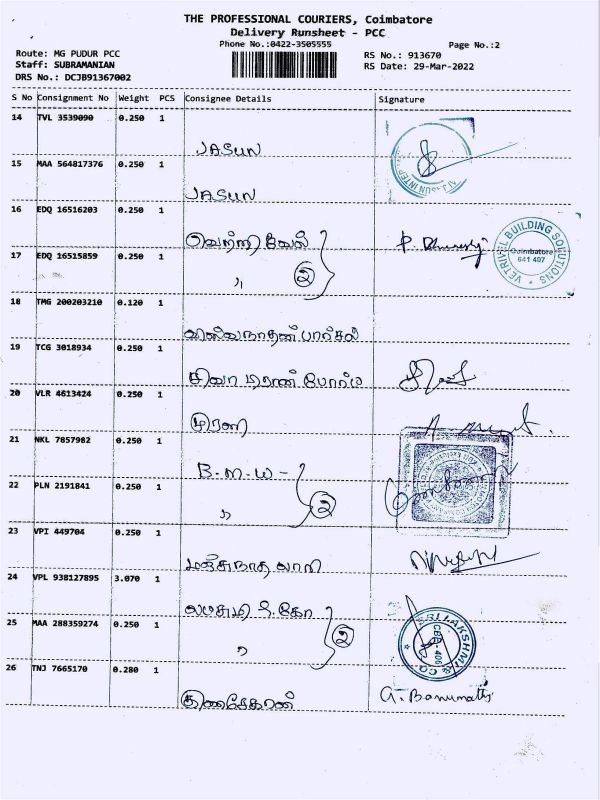 THE PROFESSIONAL COURIERS, Coimbatore
Delivery Runsheet - PCC
Phone No.:0422-3505555
Page No.:2
Route: MG PUDUR PCC
Staff: SUBRAMANIAN
DRS No.: DCJB91367002
RS No.: 913670
RS Date: 29-Mar-2022
S No Consignment No Weight PCS Consignee Details Signature
14 TVL 3539090 0.250 1
JASUN
15 MAA 564817376 0.250 1
JASUN
16 EDQ 16516203 0.250 1
வெற்றி வேல்
VETRIVEL BUILDING SOLUTIONS
Coimbatore
641 407
17 EDQ 16515859 0.250 1
" 2
18 TMG 200203210 0.120 1
வில்வநாதன் பார்சல்
19 TCG 3018934 0.250 1
சிவா
20 VLR 4613424 0.250 1
முரளி
21 NKL 7857982 0.250 1
B.M.W -
22 PLN 2191841 0.250 1
" 2
23 VPI 449704 0.250 1
மஞ்சுநாத
24 VPL 938127895 3.070 1
SRI LAKSHMI & CO
CBE - 406
25 MAA 288359274 0.250 1
" 2
26 TNJ 7665170 0.280 1
குணசேகரன்
G. Banumathi